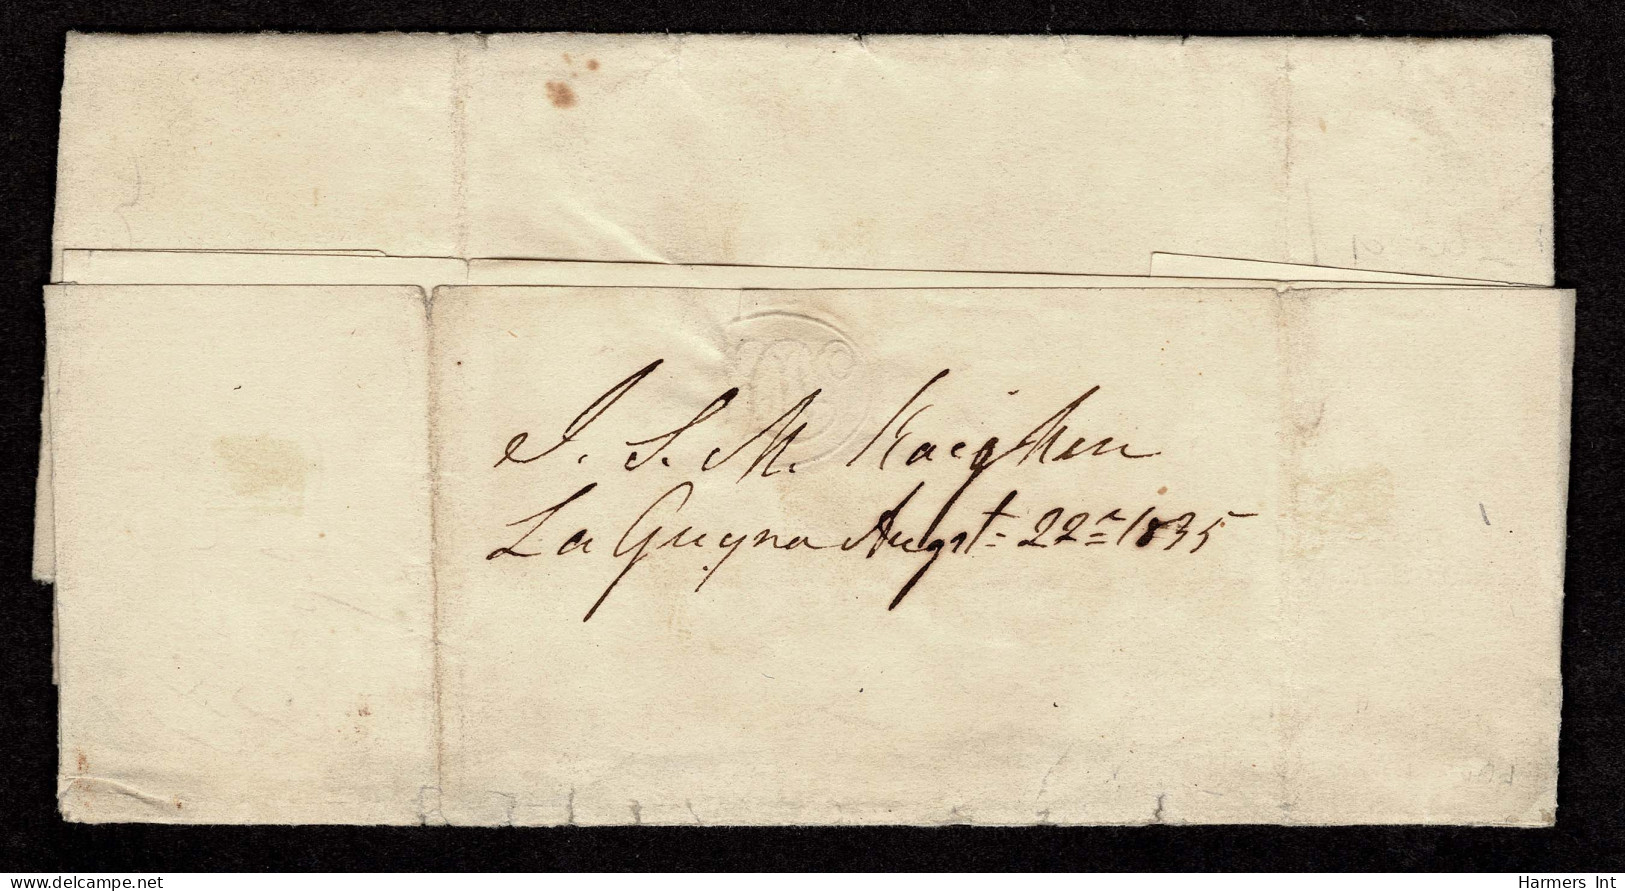 J. S. M. Kaighen
La Guyra Augst. 22n 1835
delcampe.net
Harmers Int